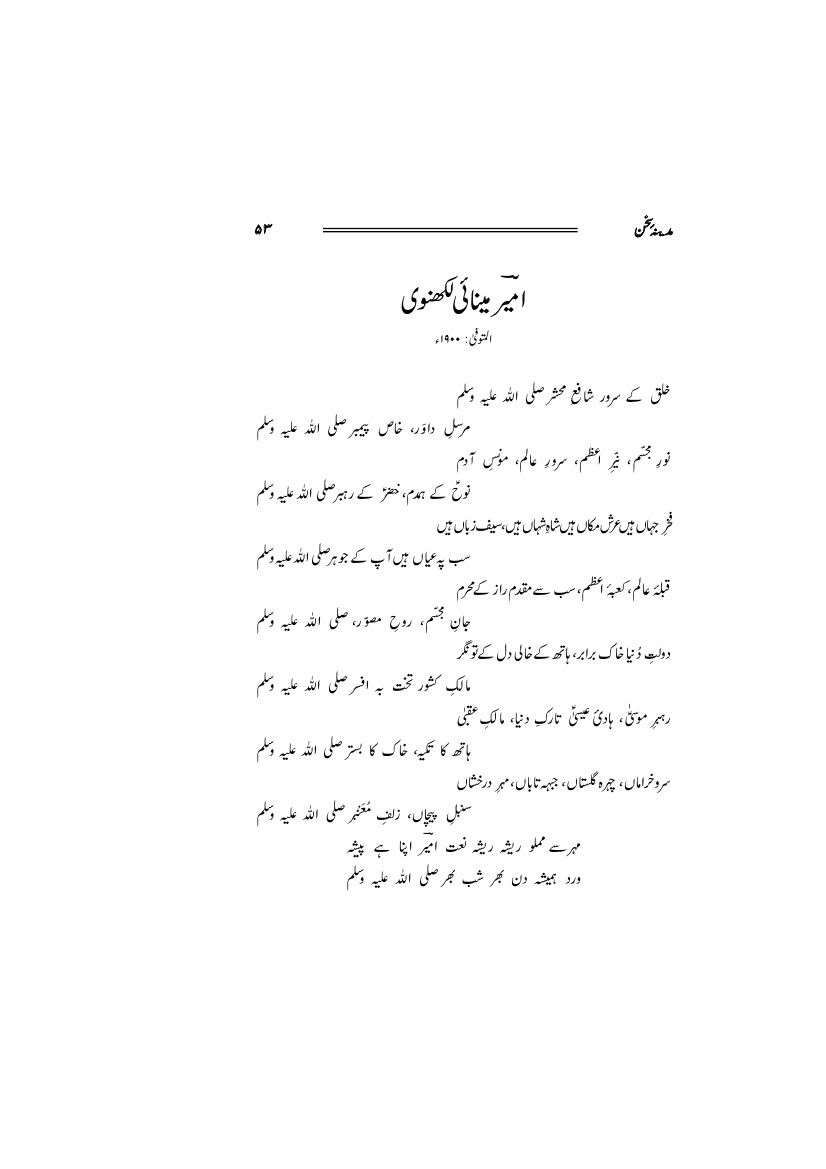 مدینۂ سخن ۵۳
امیرؔ مینائی لکھنوی
المتوفیٰ: ۱۹۰۰ء
خلق کے سرور شافعِ محشر صلی اللہ علیہ وسلم
مرسلِ داوَر، خاص پیمبر صلی اللہ علیہ وسلم
نورِ مجسّم، نیّرِ اعظم، سرورِ عالم، مونسِ آدم
نوحؑ کے ہمدم، خضرؑ کے رہبر صلی اللہ علیہ وسلم
فخرِ جہاں ہیں عرش مکاں ہیں شاہِ شہاں ہیں، سیف زباں ہیں
سب پہ عیاں ہیں آپ کے جوہر صلی اللہ علیہ وسلم
قبلۂ عالم، کعبۂ اعظم، سب سے مقدم راز کے محرم
جانِ مجسّم، روحِ مصوّر، صلی اللہ علیہ وسلم
دولتِ دُنیا خاک برابر، ہاتھ کے خالی دل کے تونگر
مالکِ کشور تخت بہ افسر صلی اللہ علیہ وسلم
رہبرِ موسیٰؑ، ہادیٔ عیسیٰؑ تارکِ دنیا، مالکِ عقبیٰ
ہاتھ کا تکیہ، خاک کا بستر صلی اللہ علیہ وسلم
سروخراماں، چہرہ گلستاں، جبہہ تاباں، مہرِ درخشاں
سنبلِ پیچاں، زلفِ مُعَنبر صلی اللہ علیہ وسلم
مہر سے مملو ریشہ ریشہ نعت امیرؔ اپنا ہے پیشہ
ورد ہمیشہ دن بھر شب بھر صلی اللہ علیہ وسلم